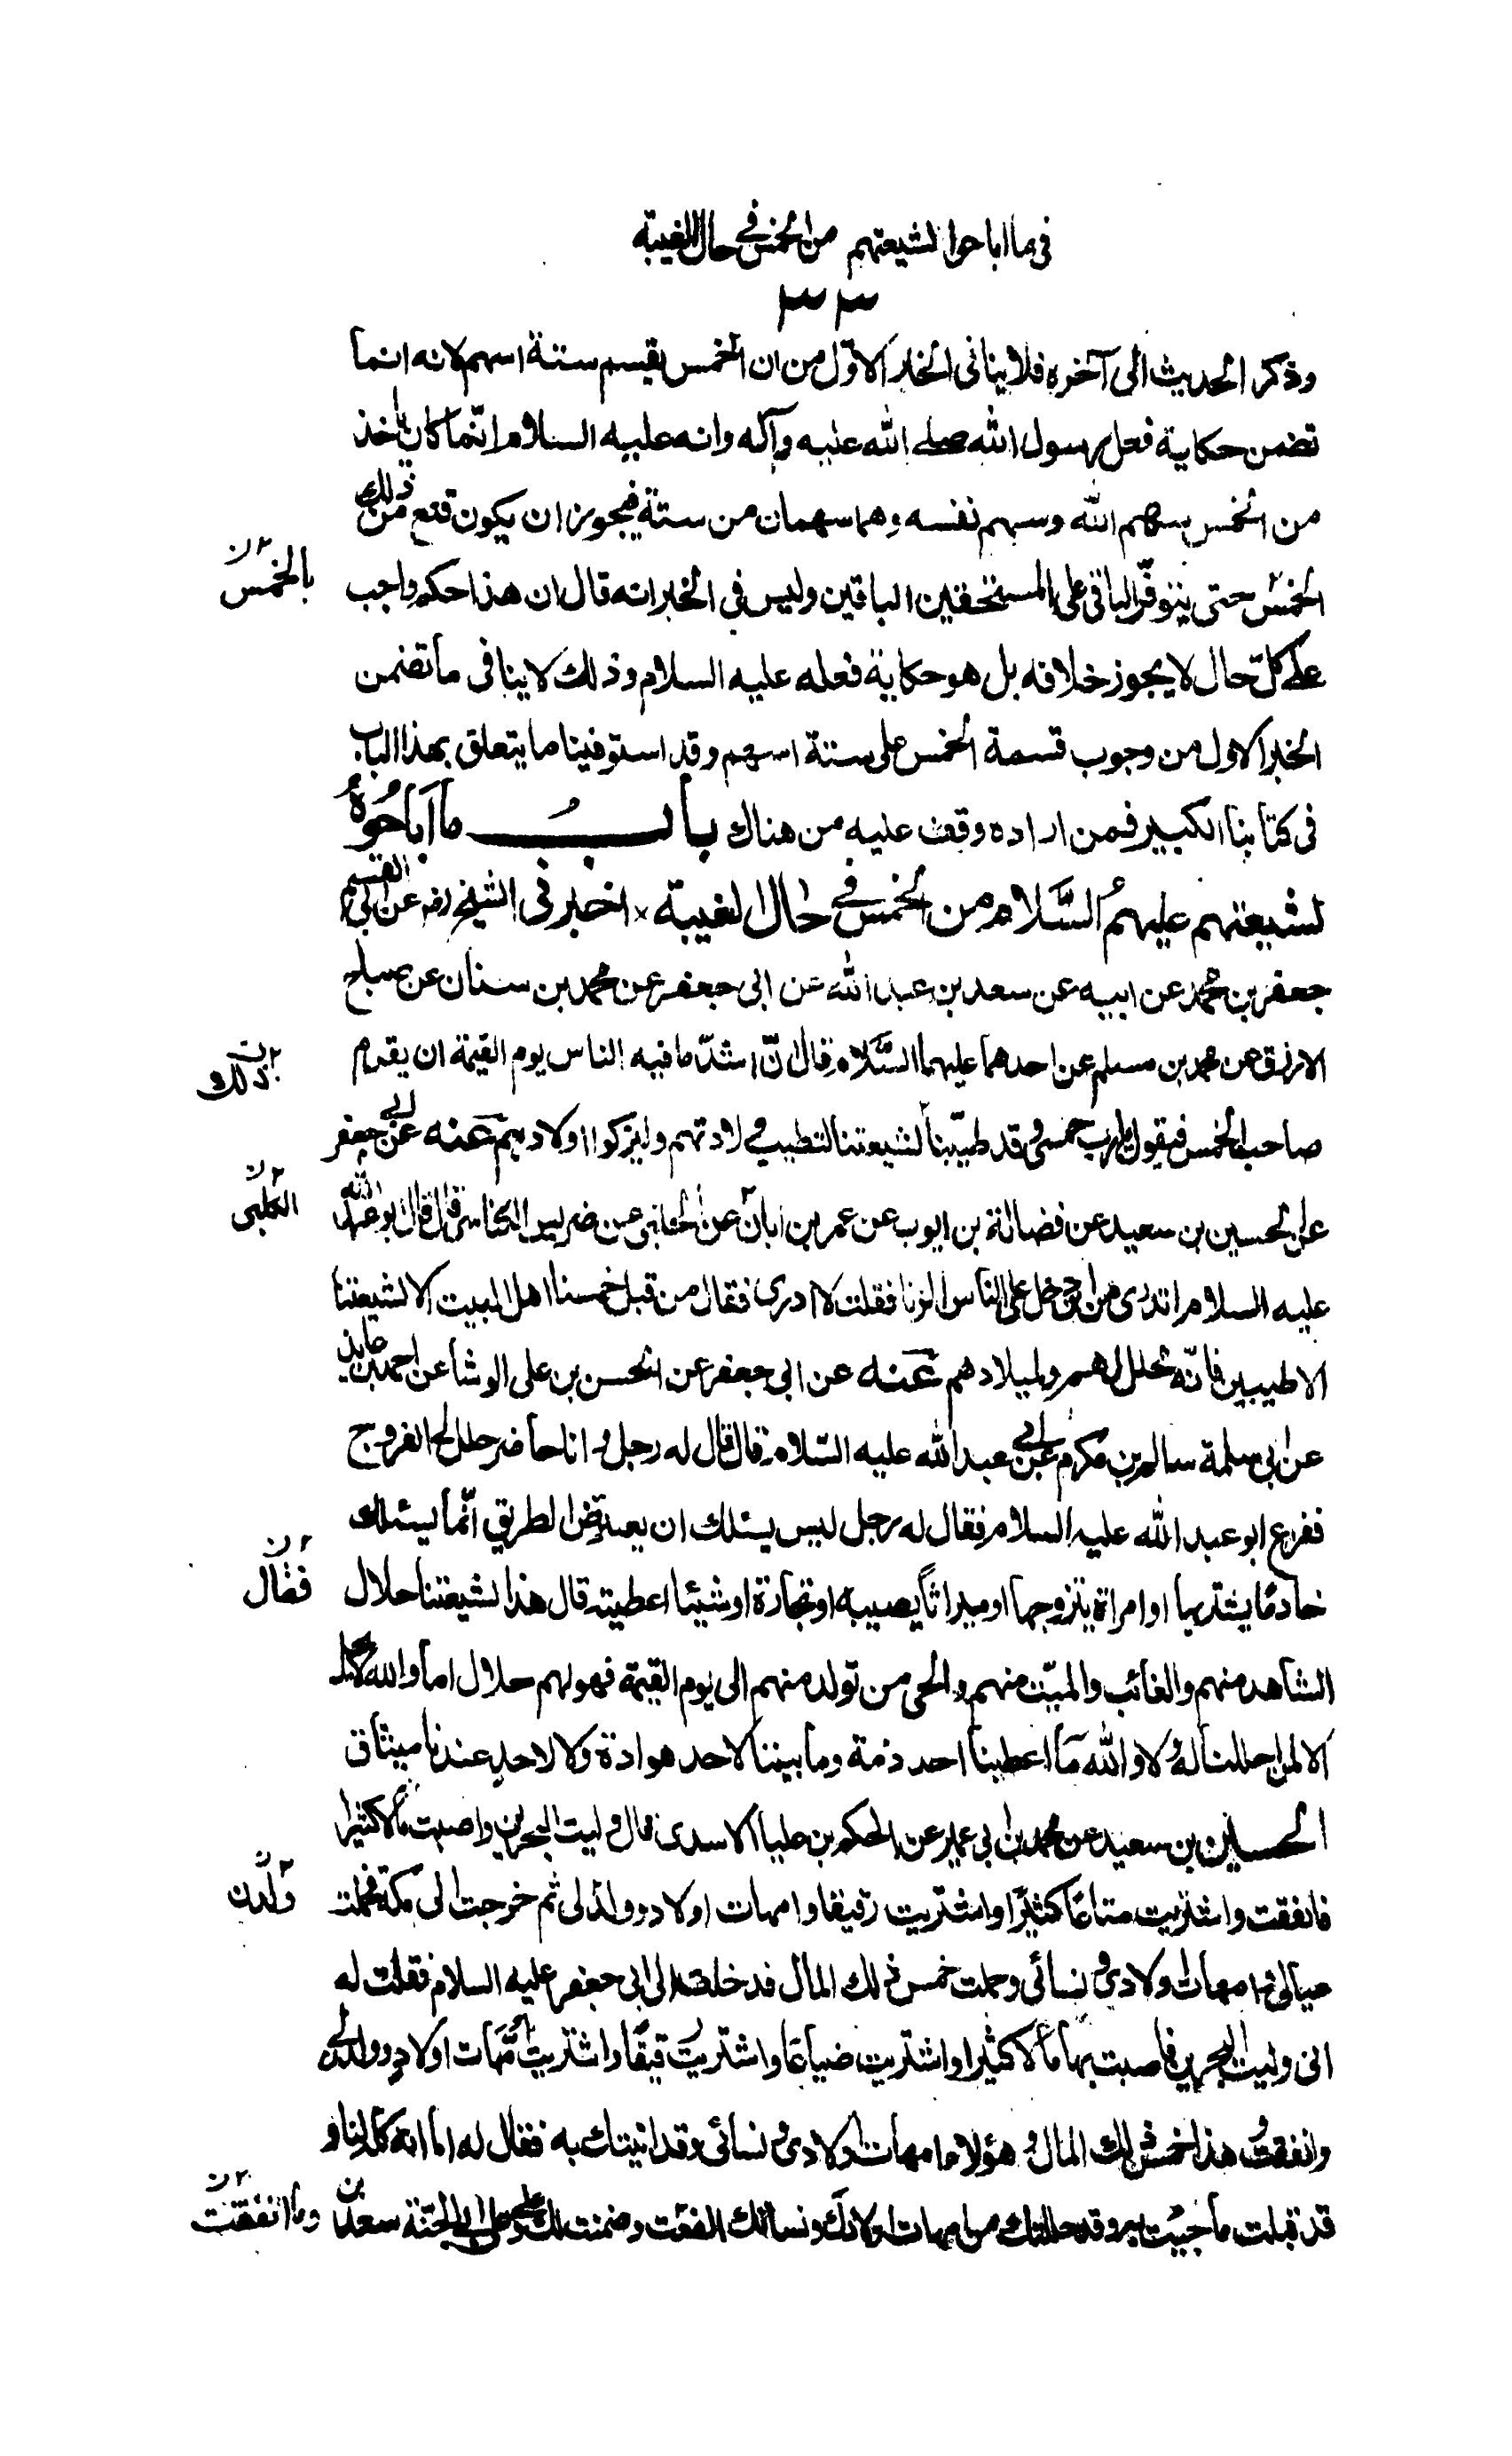 في ما اباحوا لشيعتهم من الخمس في حال الغيبة
٣٣
وذكر الحديث الى آخره فلا ينافى الخبر الاوّل من ان الخمس يقسم ستة اسهم لانه انما
تضمن حكاية فعل رسول الله صلى الله عليه وآله وانه عليه السلام انّما كان يأخذ
من الخمس سهم الله وسهم نفسه وهما سهمان من ستة فيجوز ان يكون قنع من ذلك
الخمس حتى يتوفّر الباقى على المستحقين الباقين وليس فى الخبر انه قال ان هذا حكم واجب
بالخمس ن
على كلّ حال لا يجوز خلافه بل هو حكاية فعله عليه السلام وذلك لا ينافى ما تضمن
الخبر الاول من وجوب قسمة الخمس على ستة اسهم وقد استوفينا ما يتعلق بهذا الباب
فى كتابنا الكبير فمن اراده وقف عليه من هناك بابُ ما اَباحُوهُ
لشيعتهم عليهمُ السَّلام من الخمس في حال الغيبة × اخبرنى الشيخ ره عن ابى القسم
جعفر بن محمد عن ابيه عن سعد بن عبد الله عن ابى جعفر عن محمد بن سنان عن صباح
الازرق عن محمد بن مسلم عن احدهما عليهما السَّلام قال انّ اشدّ ما فيه الناس يوم القيمة ان يقوم
ذلك ن
صاحب الخمس فيقول يا رب خمسى وقد طيّبنا لشيعتنا لتطيب ولادتهم وليزكوا اولادهم عنه عن ابى جعفر
عن الحسين بن سعيد عن فضالة بن ايوب عن عمر بن ابان عن الحلبى عن ضريس الكناسى قال قال ابو عبد الله
الكلبى ن
عليه السلام اتدرى من اين دخل على الناس الزنا فقلت لا ادرى فقال من قبل خمسنا اهل البيت الا لشيعتنا
الاطيبين فانّه محلل لهم ولميلادهم عنه عن ابى جعفر عن الحسن بن على الوشا عن احمد بن عايذ
عن ابى سلمة سالم بن مكرم عن ابى عبد الله عليه السّلام قال قال له رجل وانا حاضر حلل لى الفروج
ففزع ابو عبد الله عليه السلام فقال له رجل ليس يسئلك ان يعترض الطريق انّما يسئلك
خادمًا يشتريها او امراة يتزوجها او ميراثاً يصيبه او تجارة او شيئا اعطيته قال هذا لشيعتنا حلال
فقال ن
الشاهد منهم والغائب والميّت منهم والحى من تولد منهم الى يوم القيمة فهو لهم حلال اما والله لا يحل
الا لمن احللنا لهُ لا والله مَا اعطينا احد ذمة وما بيننا لاحد هوادة ولا لاحدٍ عندنا ميثاق
الحسين بن سعيد عن محمد بن ابى عمير عن الحكم بن علبا الاسدى قال وليت البحرين واصبت مالا كثيرا
فانفقت واشتريت متاعًا كثيرًا واشتريت رقيقا وامهات اولاد وولد لى ثم خرجت الى مكة فحملت
ولدن ن
عيالى وامهات اولادى ونسائى وحملت خمس ذلك المال فدخلت الى ابى جعفر عليه السلام فقلت له
انى وليت البحرين فاصبت بها مالا كثيرا واشتريت ضياعًا واشتريت رقيقًا واشتريت امّهات اولادٍ وولد لى
وانفقت هذا خمس ذلك المال وهؤلاء امهات اولادى ونسائى وقد اتيتك به فقال له اما انه كله لنا و
قد قبلت ما جئت به وقد حللتك من امهات اولادك ونسائك وضمنت لك على وعلى ابى الجنّة سعد بن
وما انفقت ن